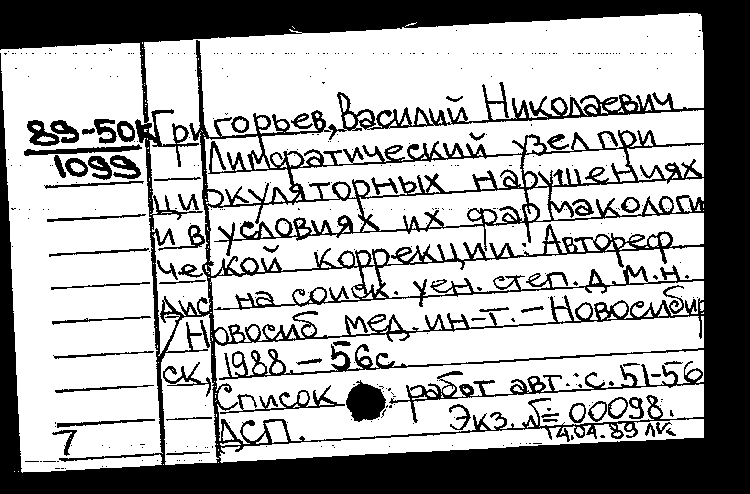 89-50к Григорьев, Василий Николаевич
1099 Лимфатический узел при
циркуляторных нарушениях
и в условиях их фармакологи
ческой коррекции: Автореф.
дис. на соиск. уен. степ. д.м.н.
/Новосиб. мед. ин-т. – Новосибир
ск, 1988. – 56с.
Список работ авт.: с. 51-56
ДСП. Экз. № 00098.
7 14.04.89 ЛК